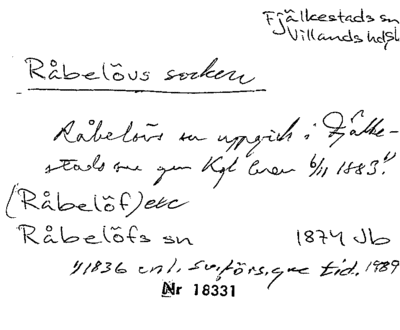 Fjälkestads sn
Villands hdsk
Råbelövs socken
Råbelövs sn uppgick i Fjälke-
stads sn gm Kgl brev 6/11 1883.1)
(Råbelöf) etc
Råbelöfs sn 1874 Jb
1) 1836 enl. Sv. förs. gm tid. 1989
Nr 18331